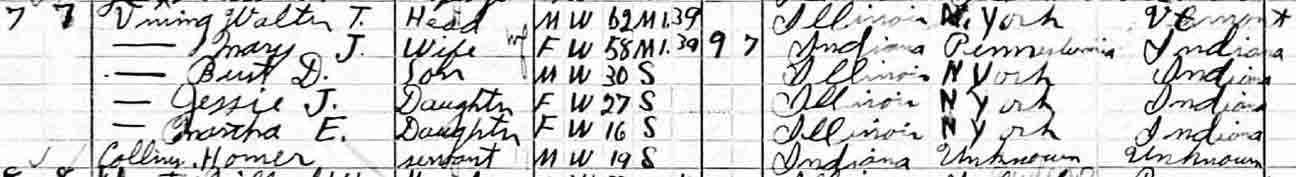 7 7 Vining Walter T. Head M W 62 M1 39 Illinois N. York Vermont *
— Mary J. Wife F W 58 M1 39 9 7 Indiana Pennsylvania Indiana
— Burt D. Son M W 30 S Illinois N York Indiana
— Jessie J. Daughter F W 27 S Illinois N York Indiana
— Martha E. Daughter F W 16 S Illinois N York Indiana
Collins, Homer servant M W 19 S Indiana Unknown Unknown